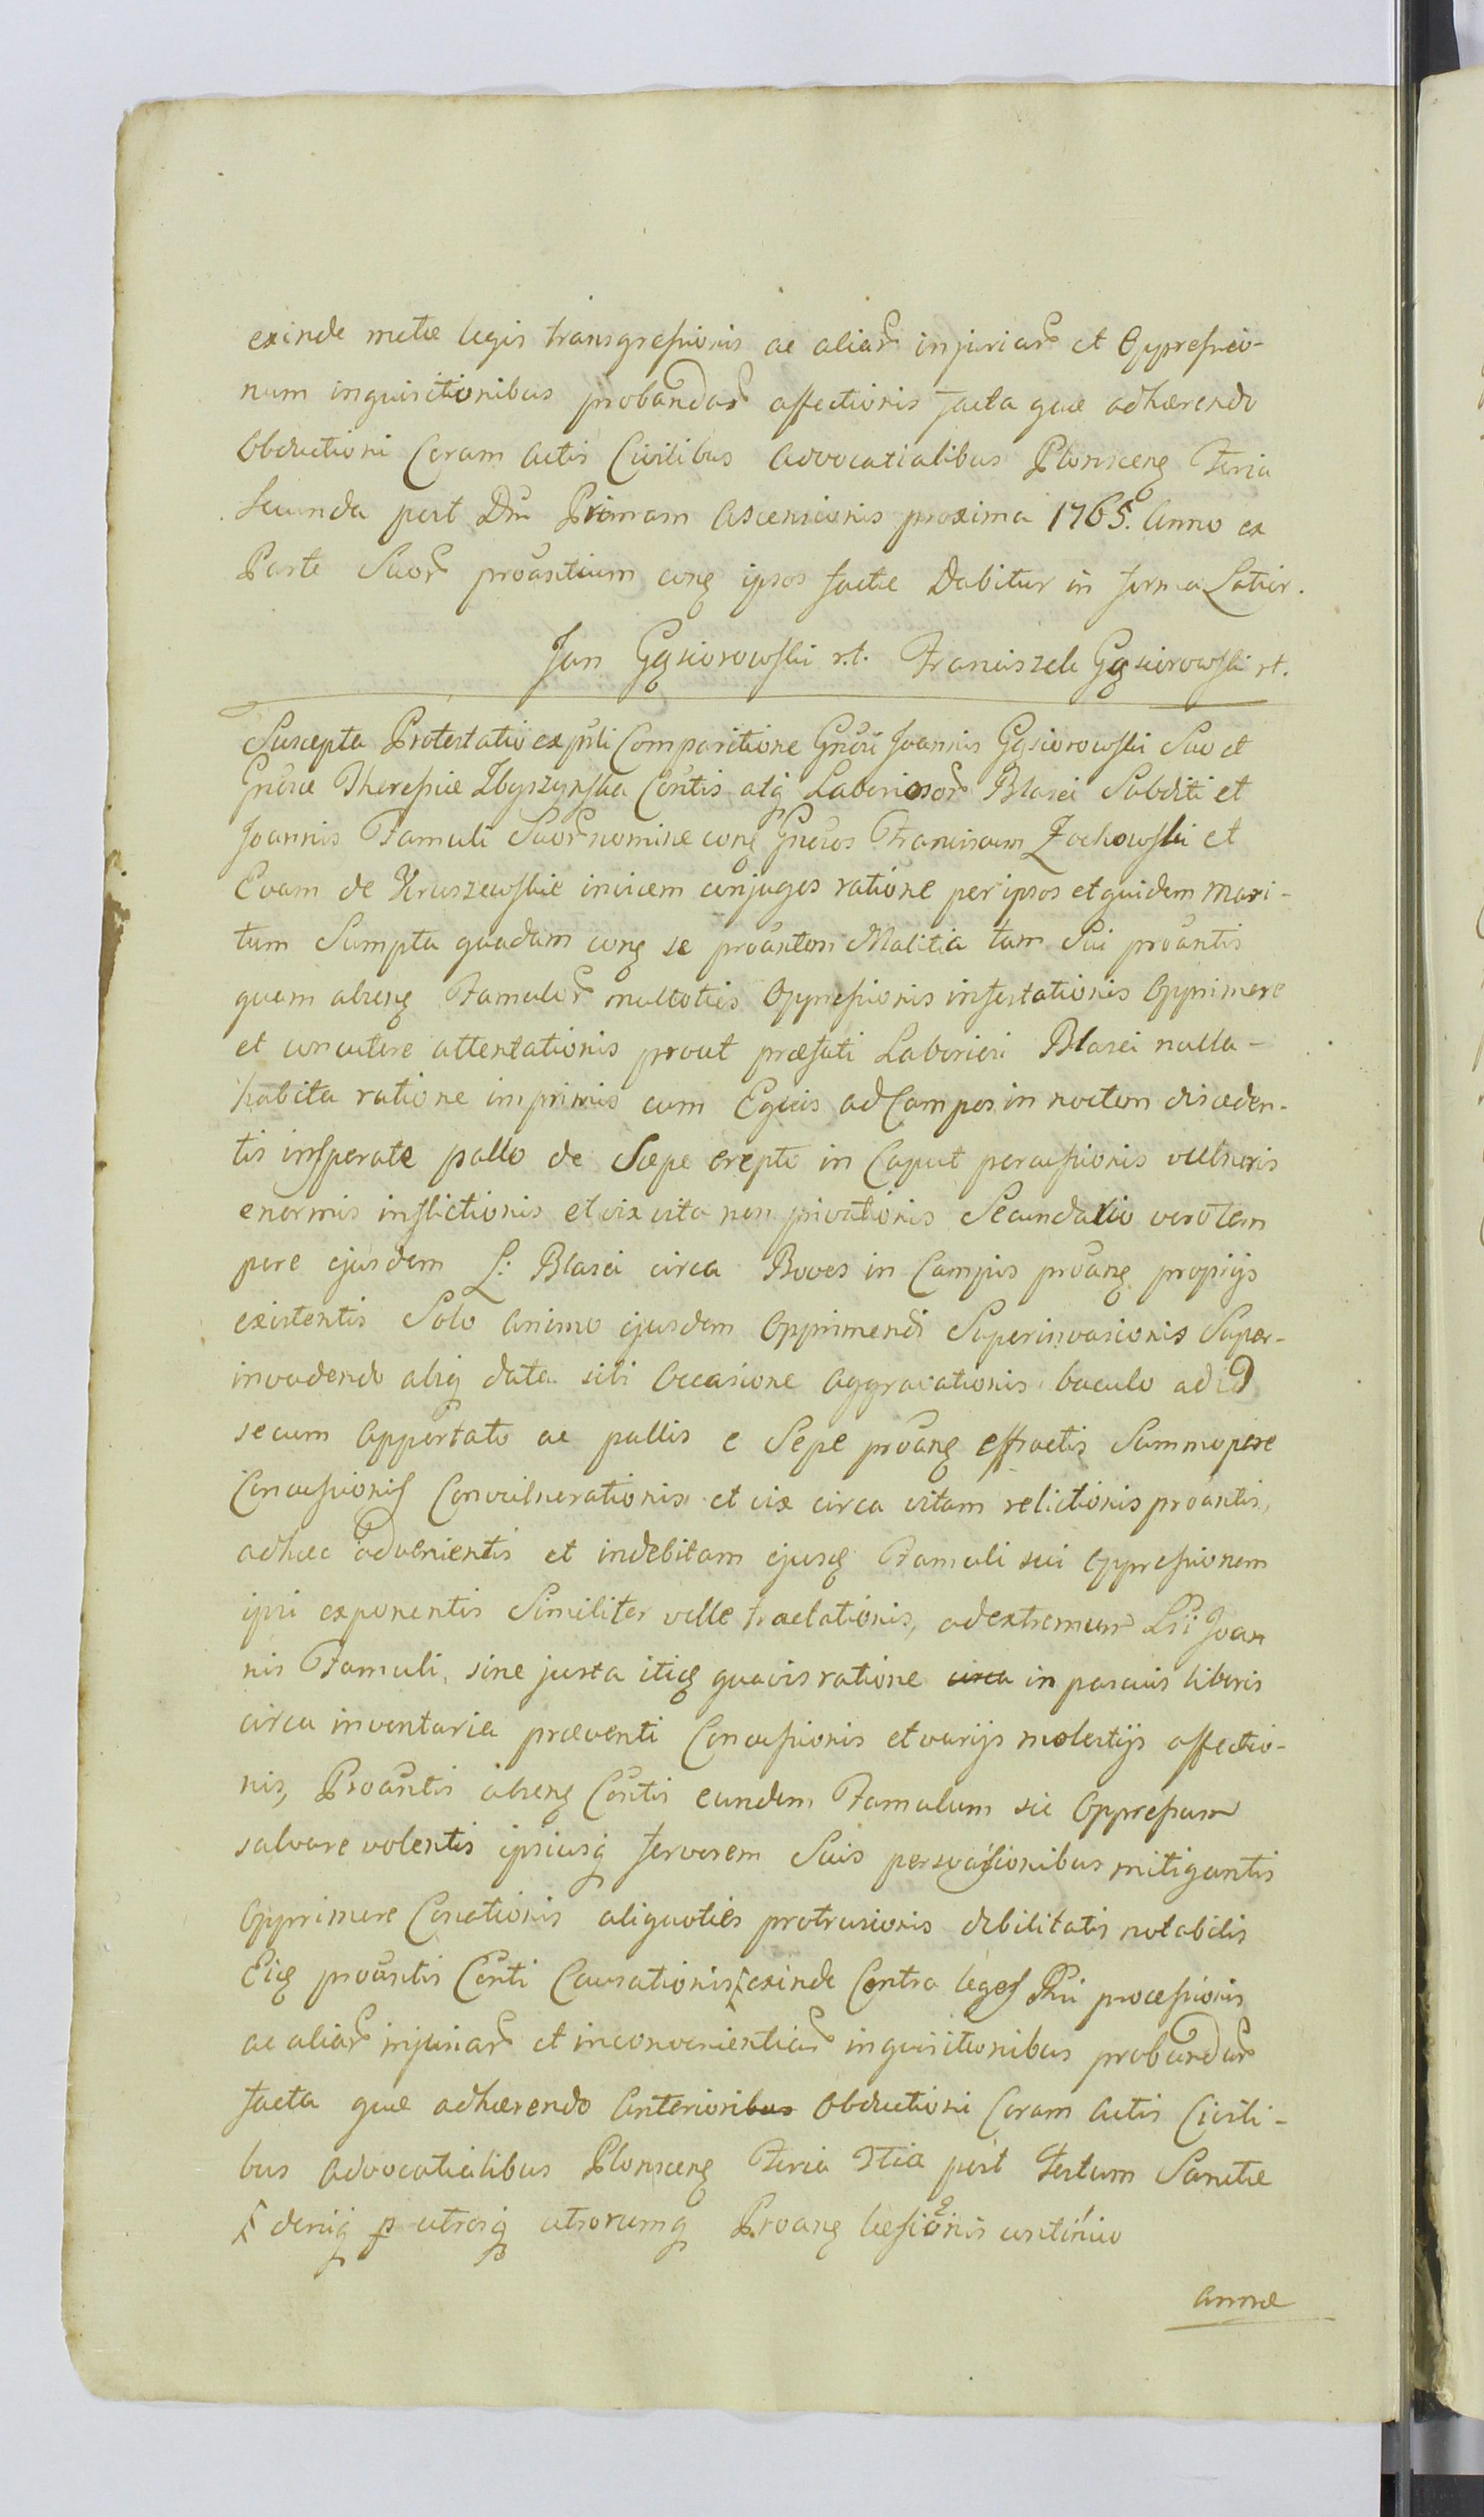 exinde metæ legis transgressionis ac aliar̃ injuriar̃ et Oppressio-
num inquisitionibus probandar̃ affectionis facta quæ adhærendo
Obductioni Coram Actis Civilibus Advocatialibus Plonscenʒ Feria
secunda post Dm̃ Primam Ascensionis proxima 1765. Anno ex
Parte Suor̃ proãntium conʒ ipsos factæ Dabitur in forma Latior.
Jan Gąsiorowski r.t. Franciszek Gąsiorowski rt.
Suscepta Protestatio ex pñti Comparitione Gñosi Joannis Gąsiorowski Suo et
Gñosæ Theressiæ Zbyszynska Cõntis atq Laboriosor̃ Blasei Subditi et
Joannis Famuli Suor̃ nomine conʒ Gñosos Franciscum Żochowski et
Evam de Kruszewskie invicem conjuges ratione per ipsos et quidem mari-
tum Sumpta quadam conʒ se proãntem Malitia tam Sui proãntis
quam alrenʒ Famulor̃ multoties Oppressionis infestationis Opprimere
et concutere attentationis prout præfati Laboriosi Blasei nulla-
habita ratione imprimis cum Equis ad Campos in noctem disceden-
tis insperate pallo de Sæpe erepto in Caput percussionis vulneris
enormis inflictionis et vix vita non privationis Secundario vero tem
pore ejusdem L: Blasei circa Boves in Campis proãnʒ proprijs
existentis Solo animo ejusdem Opprimendi Superinvasionis Super-
invadendo absq data sibi Occasione Aggravationis baculo ad id
secum Apportato ac pallis e Sepe proãnʒ effractis Summopere
Concussionis Convulnerationis et vix circa vitam relictionis proãntis,
adhuc advenientis et indebitam ejusʒ Famuli sui Oppressionem
ipsi exponentis Similiter velle tractationis, ad extremum Lsi Joan
nis Famuli, sine justa itiʒ quavis ratione circa in pascuis liberis
circa inventaria præventi Concussionis et varijs molestijs affectio-
nis, Proãntis alrenʒ Cõntis eundem Famulum sic Oppressum
salvare volentis ipsiusq fervorem Suis persvasionibus mitigantis
Opprimere Conationis aliquoties protrusionis debilitatis notabilis
Eiʒ proãntis Cõnti Causationis exinde Contra leges Pñi processionis
ac aliar̃ injuriar̃ et inconvenientiar̃ inquisitionibus probandar̃
facta quæ adhærendo Anterioribus Obductioni Coram Actis Civili-
bus Advocatialibus Plonscenʒ Feria 3tia post Festum Sanctæ
deniq p utrosq utrorumq Proãnʒ læsionis continuo
Annæ